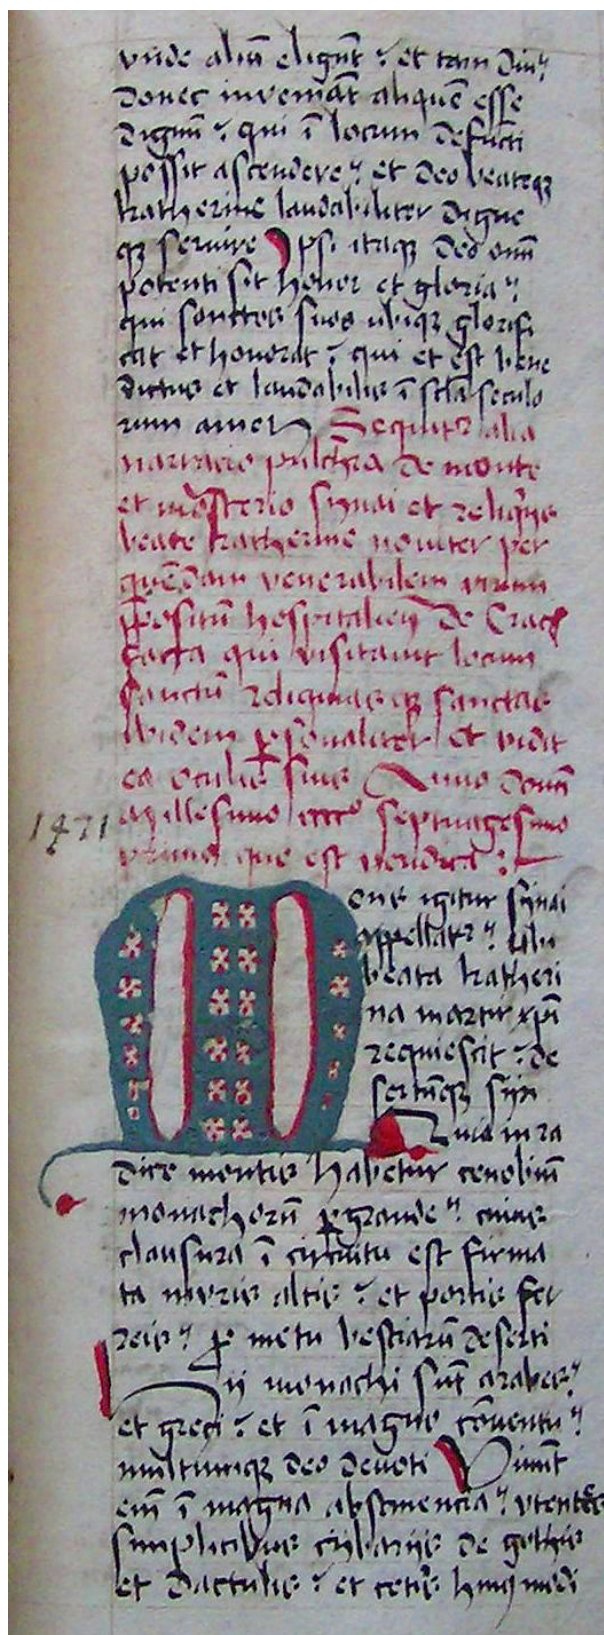 vnde aliū eligūt : et tam diu
donec inveniāt aliquē esse
dignū : qui ī locum defūcti
possit ascendere : et deo beateqȝ
katherine laudabiliter digne
qȝ servire Ipsi itaqȝ deo om̄i
potenti sit honor et gloria :
qui sanctos suos ubiqȝ glorifi
cat et honorat : qui et est bene
dictus et laudabilis ī scła seculo
rum amen Sequitr alia
narracio pulchra de monte
et mōsterio synai et reliquijs
beate katherine noviter per
quēdam venerabilem virum
p̄positū hospitalem de Crach
facta qui visitavit locum
sanctū reliquiasqȝ sanctas
ibidem ꝑsonaliter et vidit
ea oculis suis Anno domī
Millesimo cccco septuagesimo
1471
primo que est vera
Mons igitur synai
appellatr : ubi
beata katheri
na martir xp̄i
requiescit : de
sertūqȝ syn
Quia in ra
dice montis habetur cenobiū
monachorū ꝑgrande : cuius
clausura ī circuitu est firma
ta muris altis : et portis fer
reis : ꝓ metu bestiarū deserti
Hij monachi sūt arabes :
et greci : et ī magno cōventu :
multumqȝ deo devoti Vivūt
em̄ ī magna abstinencia : utentes
simplicibus cybarijs de
et dactulis : et ceteris huiusmodi